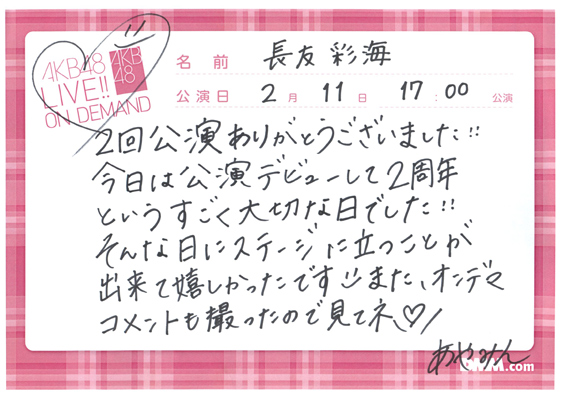 AKB48
LIVE!!
ON DEMAND
AKB
48
名前 長友彩海
公演日 2月 11日 17:00 公演
2回公演ありがとうございました!!
今日は公演デビューして2周年
というすごく大切な日でした!!
そんな日にステージに立つことが
出来て嬉しかったです また、オンデマ
コメントも撮ったので見てネ♡
あやみん
DMM.com